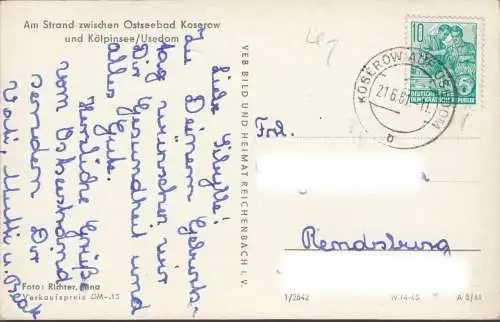 Am Strand zwischen Ostseebad Koserow
und Kölpinsee/Usedom
Liebe Sibylle!
Zu Deinem Geburts-
tag wünschen wir
Dir Gesundheit und
alles Gute.
Herrliche Grüße
vom Ostseestrand
senden Dir
Vati, Mutti u.
Foto: Richter,
Verkaufspreis DM -.15
VEB BILD UND HEIMAT REICHENBACH I. V.
1/2642
47
10
DEUTSCHE
DEMOKRATISCHE REPUBLIK
KOSEROW AUF USEDOM
21.6.61
b
Frd.
Rendsburg
IV-14-45
A 3/61